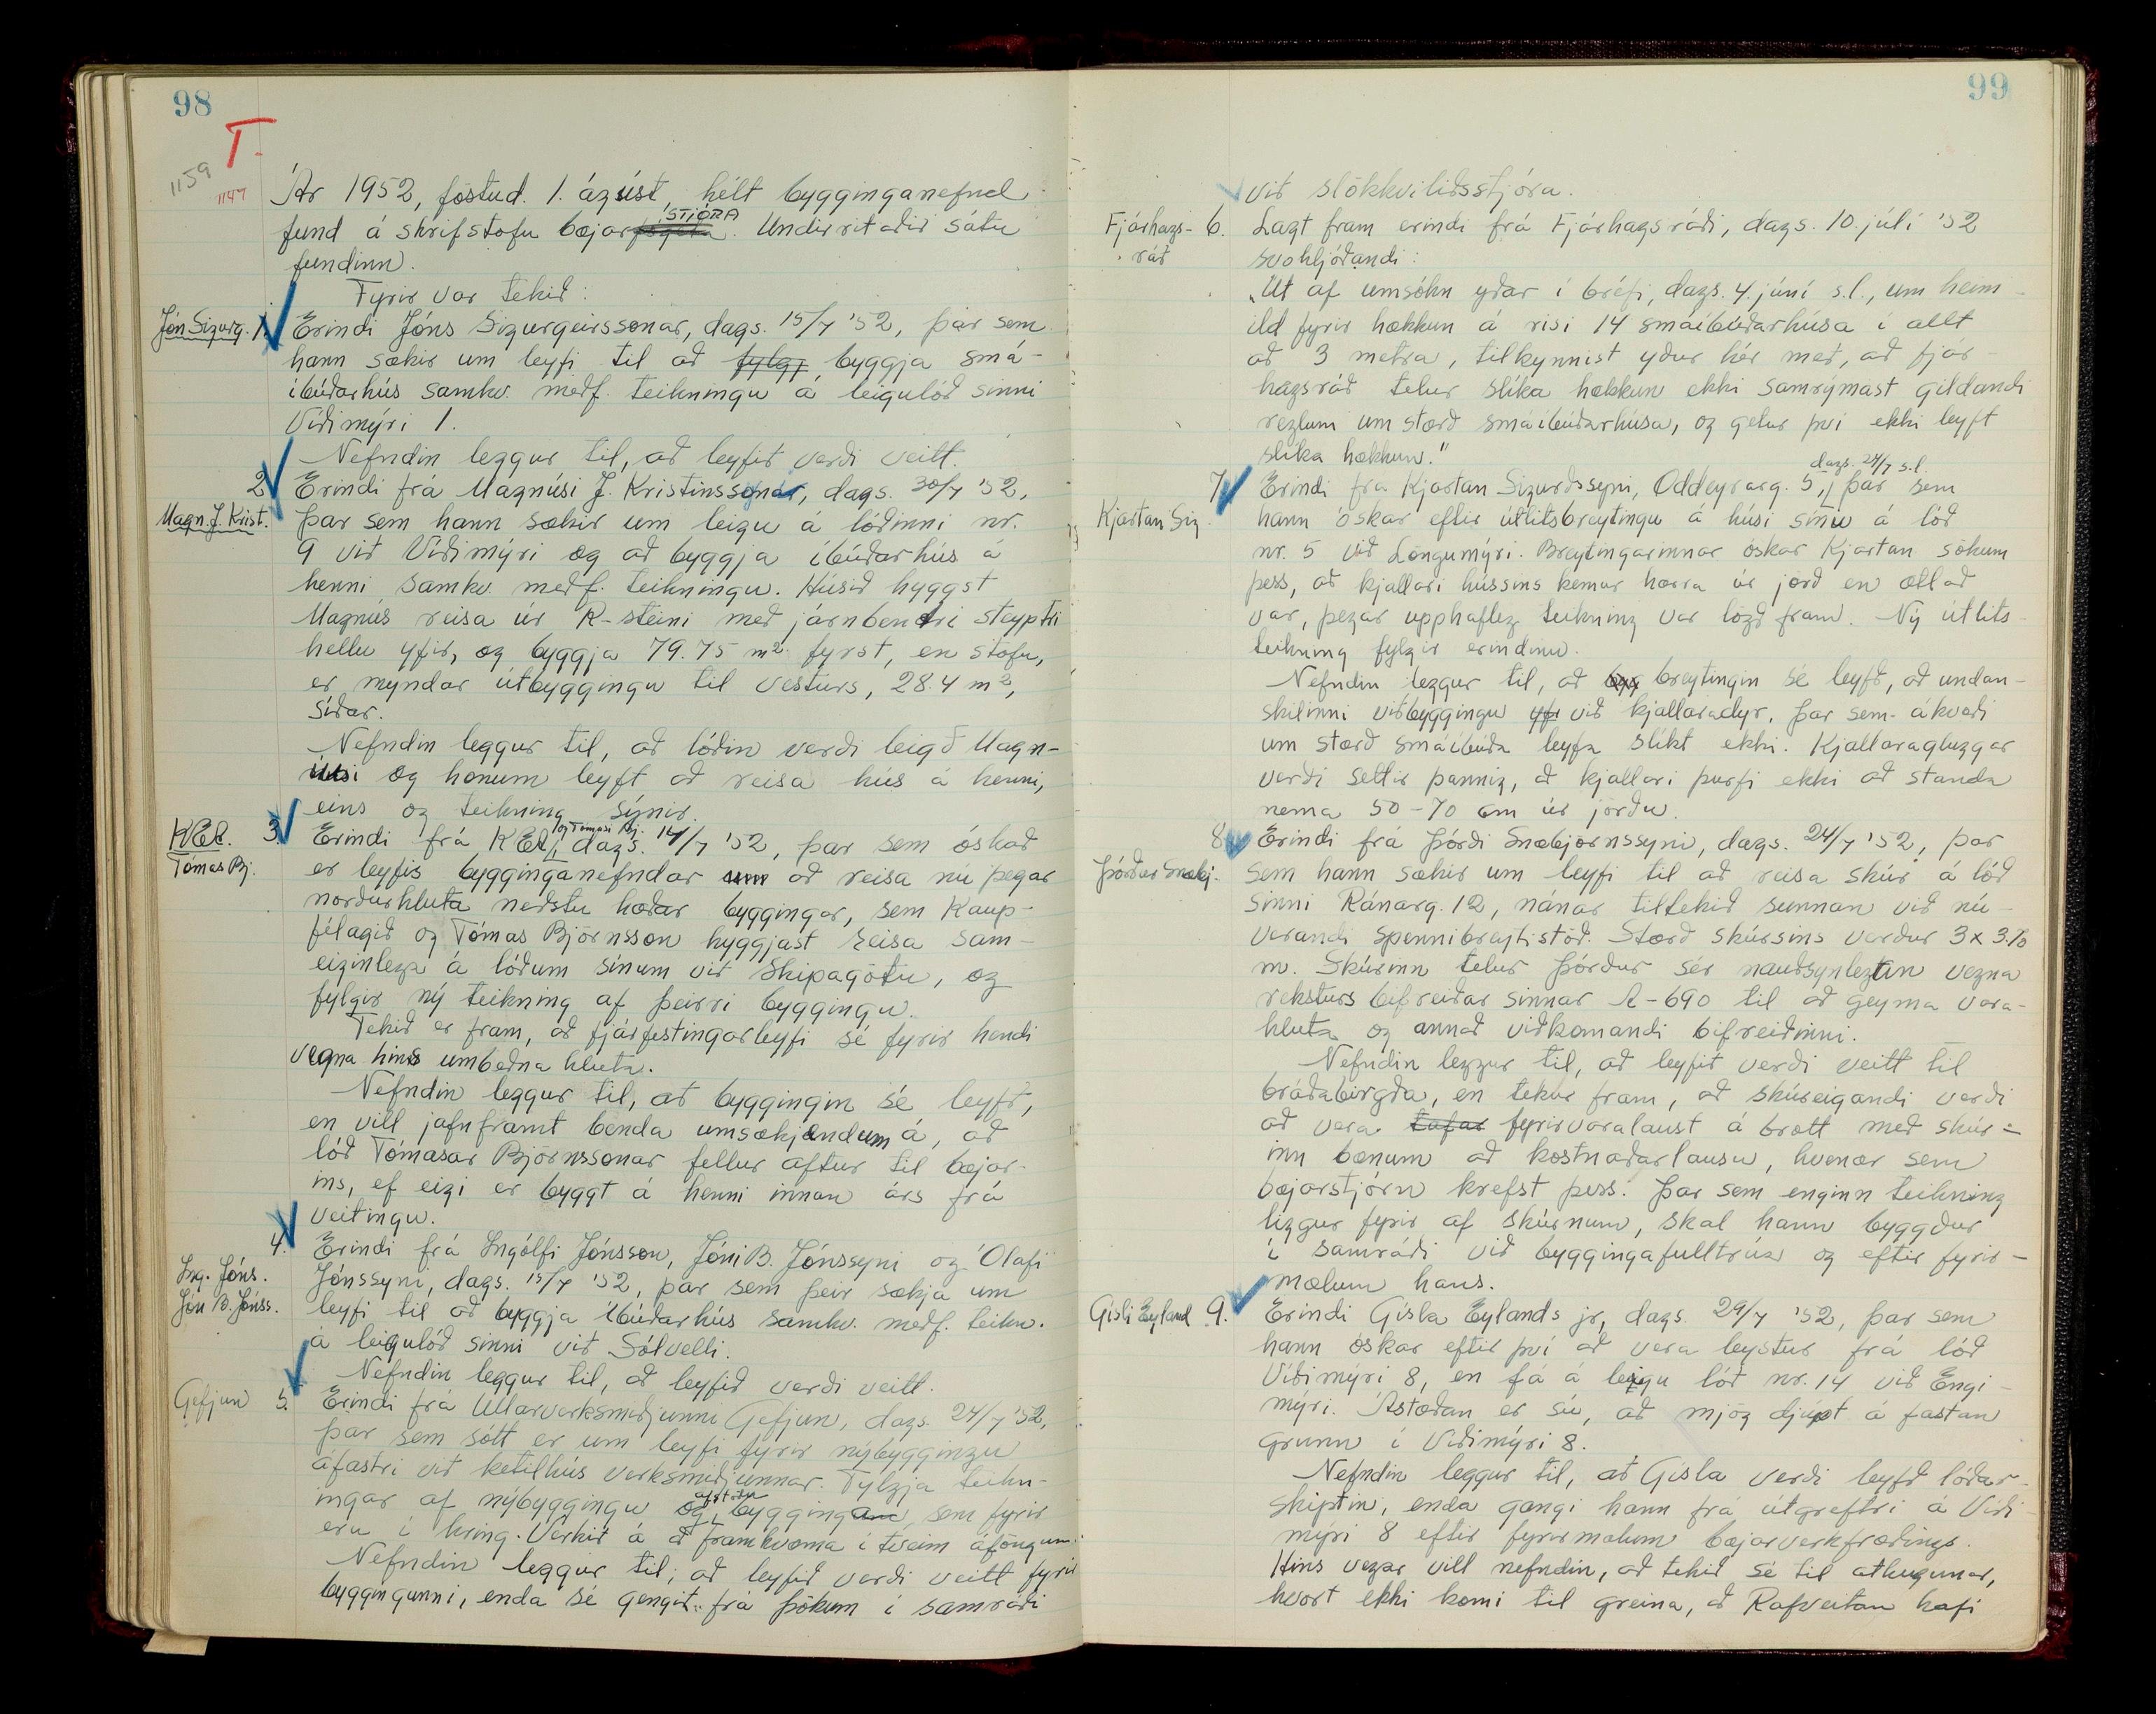 98
T.
1159
1147
Ár 1952, föstud. 1. ágúst, hélt bygginganefnd
fund á skrifstofu bæjarfógeta STJÓRA. Undirritaðir sátu
fundinn.
Fyrir var tekið:
Jón Sigurg. 1. Erindi Jóns Sigurgeirssonar, dags. 15/7 '52, þar sem
hann sækir um leyfi til að fylgj byggja smá-
íbúðarhús samkv. meðf. teikningu á leigulóð sinni
Víðimýri 1.
Nefndin leggur til, að leyfið verði veitt.
2. Erindi frá Magnúsi J. Kristinssonar, dags. 30/7 '52,
Magn. J. Krist. þar sem hann sækir um leigu á lóðinni nr.
9 við Víðimýri og að byggja íbúðarhús á
henni samkv. meðf. teikningu. Húsið hyggst
Magnús reisa úr R-steini með járnbentri steyptri
hellu yfir, og byggja 79.75 m² fyrst, en stofu,
er myndar útbyggingu til vesturs, 28.4 m²,
síðar.
Nefndin leggur til, að lóðin verði leigð Magn-
úsi og honum leyft að reisa hús á henni,
eins og teikning sýnir.
KEA. 3. Erindi frá KEA, og Tómasi Bj. dags. 14/7 '52, þar sem óskað
Tómas Bj. er leyfis bygginganefndar um að reisa nú þegar
norðurhluta neðstu hæðar byggingar, sem Kaup-
félagið og Tómas Björnsson hyggjast reisa sam-
eiginlega á lóðum sínum við Skipagötu, og
fylgir ný teikning af þeirri byggingu.
Tekið er fram, að fjárfestingarleyfi sé fyrir hendi
vegna hins umbeðna hluta.
Nefndin leggur til, að byggingin sé leyfð,
en vill jafnframt benda umsækjendum á, að
lóð Tómasar Björnssonar fellur aftur til bæjar-
ins, ef eigi er byggt á henni innan árs frá
veitingu.
4. Erindi frá Ingólfi Jónsson, Jóni B. Jónssyni og Ólafi
Ing. Jóns. Jónssyni, dags. 15/7 '52, þar sem þeir sækja um
Jón B. Jónss. leyfi til að byggja íbúðarhús samkv. meðf. teikn.
á leigulóð sinni við Sólvelli.
Nefndin leggur til, að leyfið verði veitt.
Gefjun 5. Erindi frá Ullarverksmiðjunni Gefjun, dags. 24/7 '52,
þar sem sótt er um leyfi fyrir nýbyggingu
áfastri við ketilhús verksmiðjunnar. Fylgja teikn-
ingar af nýbyggingu og afstöðu bygginga, sem fyrir
eru í kring. Verkið á að framkvæma í tveim áföngum.
Nefndin leggur til, að leyfið verði veitt fyrir
byggingunni, enda sé gengið frá þökum í samráði
99
við slökkviliðsstjóra.
Fjárhags- 6. Lagt fram erindi frá Fjárhagsráði, dags. 10. júlí '52
ráð svohljóðandi:
„Út af umsókn yðar í bréfi, dags. 4. júní s.l., um heim-
ild fyrir hækkun á risi 14 smáíbúðarhúsa í allt
að 3 metra, tilkynnist yður hér með, að fjár-
hagsráð telur slíka hækkun ekki samrýmast gildandi
reglum um stærð smáíbúðarhúsa, og getur því ekki leyft
slíka hækkun."
7. Erindi frá Kjartan Sigurðssyni, Oddeyrarg. 5, dags. 24/7 s.l. þar sem
Kjartan Sig. hann óskar eftir útlitsbreytingu á húsi sínu á lóð
nr. 5 við Löngumýri. Breytingarinnar óskar Kjartan sökum
þess, að kjallari hússins kemur hærra úr jörð en ætlað
var, þegar upphafleg teikning var lögð fram. Ný útlits-
teikning fylgir erindinu.
Nefndin leggur til, að byg breytingin sé leyfð, að undan-
skilinni viðbyggingu yfi við kjallaradyr, þar sem ákvæði
um stærð smáíbúða leyfa slíkt ekki. Kjallaragluggar
verði settir þannig, að kjallari þurfi ekki að standa
nema 50-70 cm úr jörðu.
8. Erindi frá Þórði Snæbjörnssyni, dags. 24/7 '52, þar
Þórður Snæbj. sem hann sækir um leyfi til að reisa skúr á lóð
sinni Ránarg. 12, nánar tiltekið sunnan við nú-
verandi spennibreytistöð. Stærð skúrsins verður 3 x 3.70
m. Skúrinn telur Þórður sér nauðsynlegan vegna
reksturs bifreiðar sinnar A-690 til að geyma vara-
hluta og annað viðkomandi bifreiðinni.
Nefndin leggur til, að leyfið verði veitt til
bráðabirgða, en tekur fram, að skúreigandi verði
að vera tafar fyrirvaralaust á brott með skúr-
inn bænum að kostnaðarlausu, hvenær sem
bæjarstjórn krefst þess. Þar sem enginn teikning
liggur fyrir af skúrnum, skal hann byggður
í samráði við byggingafulltrúa og eftir fyrir-
mælum hans.
Gísli Eyland 9. Erindi Gísla Eylands jr, dags. 29/7 '52, þar sem
hann óskar eftir því að vera leystur frá lóð
Víðimýri 8, en fá á leigu lóð nr. 14 við Engi-
mýri. Ástæðan er sú, að mjög djúpt á fastan
grunn í Víðimýri 8.
Nefndin leggur til, að Gísla verði leyfð lóðar-
skiptin, enda gangi hann frá útgreftri á Víði-
mýri 8 eftir fyrirmælum bæjarverkfræðings.
Hins vegar vill nefndin, að tekið sé til athugunar,
hvort ekki komi til greina, að Rafveitan hafi